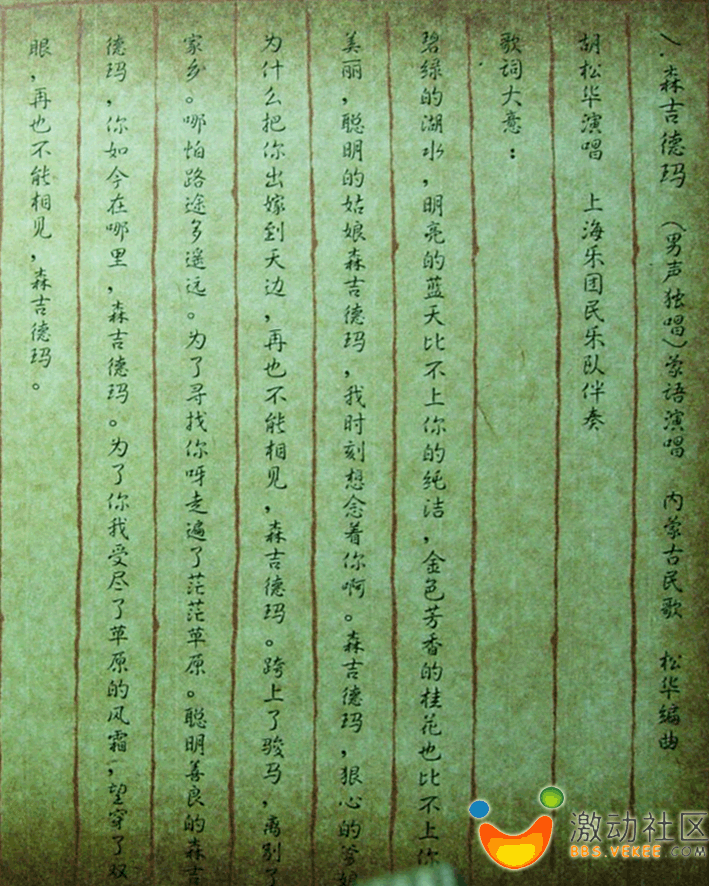 八、森吉德玛 （男声独唱）蒙语演唱 内蒙古民歌 松华编曲
胡松华演唱 上海乐团民乐队伴奏
歌词大意：
碧绿的湖水，明亮的蓝天比不上你的纯洁，金色芳香的桂花也比不上你
美丽，聪明的姑娘森吉德玛，我时刻想念着你啊。森吉德玛，狠心的爹娘
为什么把你出嫁到天边，再也不能相见，森吉德玛。跨上了骏马，离别了
家乡。哪怕路途多遥远。为了寻找你呀走遍了茫茫草原。聪明善良的森吉
德玛，你如今在哪里，森吉德玛。为了你我受尽了草原的风霜，望穿了双
眼，再也不能相见，森吉德玛。
激动社区
BBS.VEKEE.COM